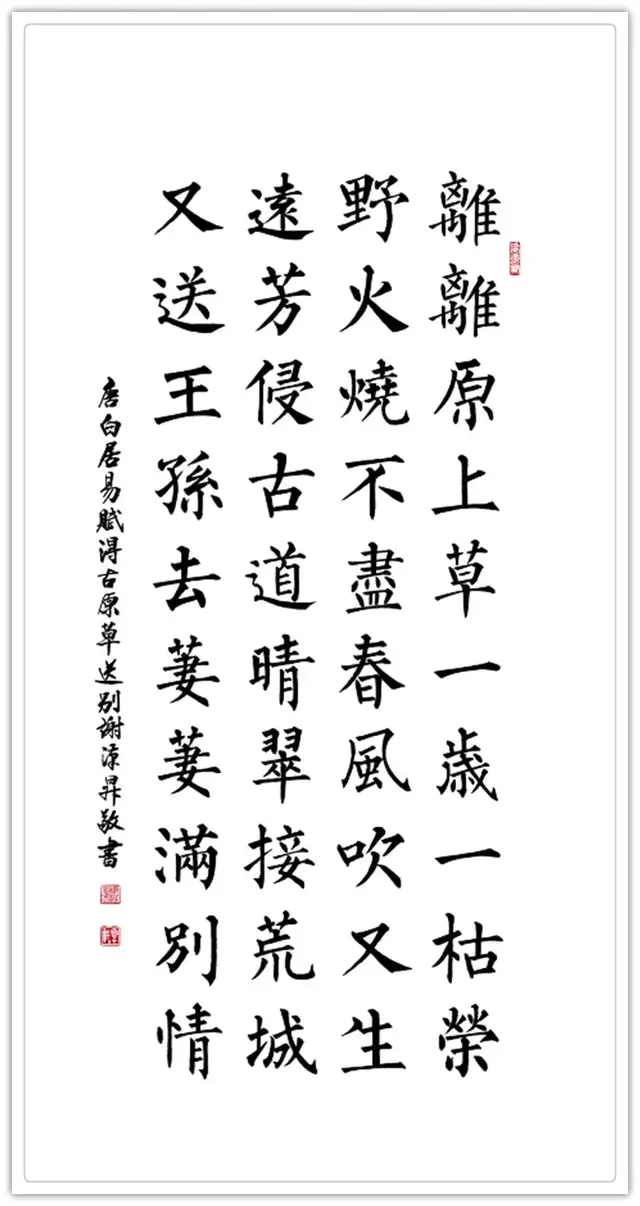 離離原上草一歲一枯榮
野火燒不盡春風吹又生
遠芳侵古道晴翠接荒城
又送王孫去萋萋滿別情
唐白居易賦得古原草送別謝涼昇敬書